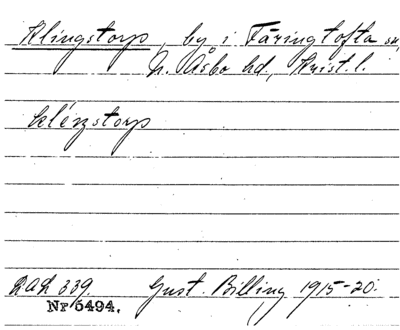 Klingstorp, by i Färingtofta sn,
N. Åsbo hd., Krist. l.
klé₂ŋstorp
DAL 339. Gust. Billing 1915-20.
Nr 5494.